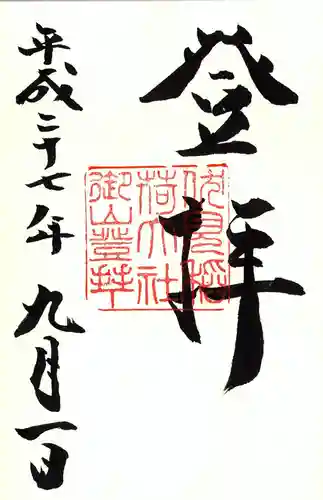 登拝
伏見稲
荷大社
御山登拝
平成二十七年九月一日